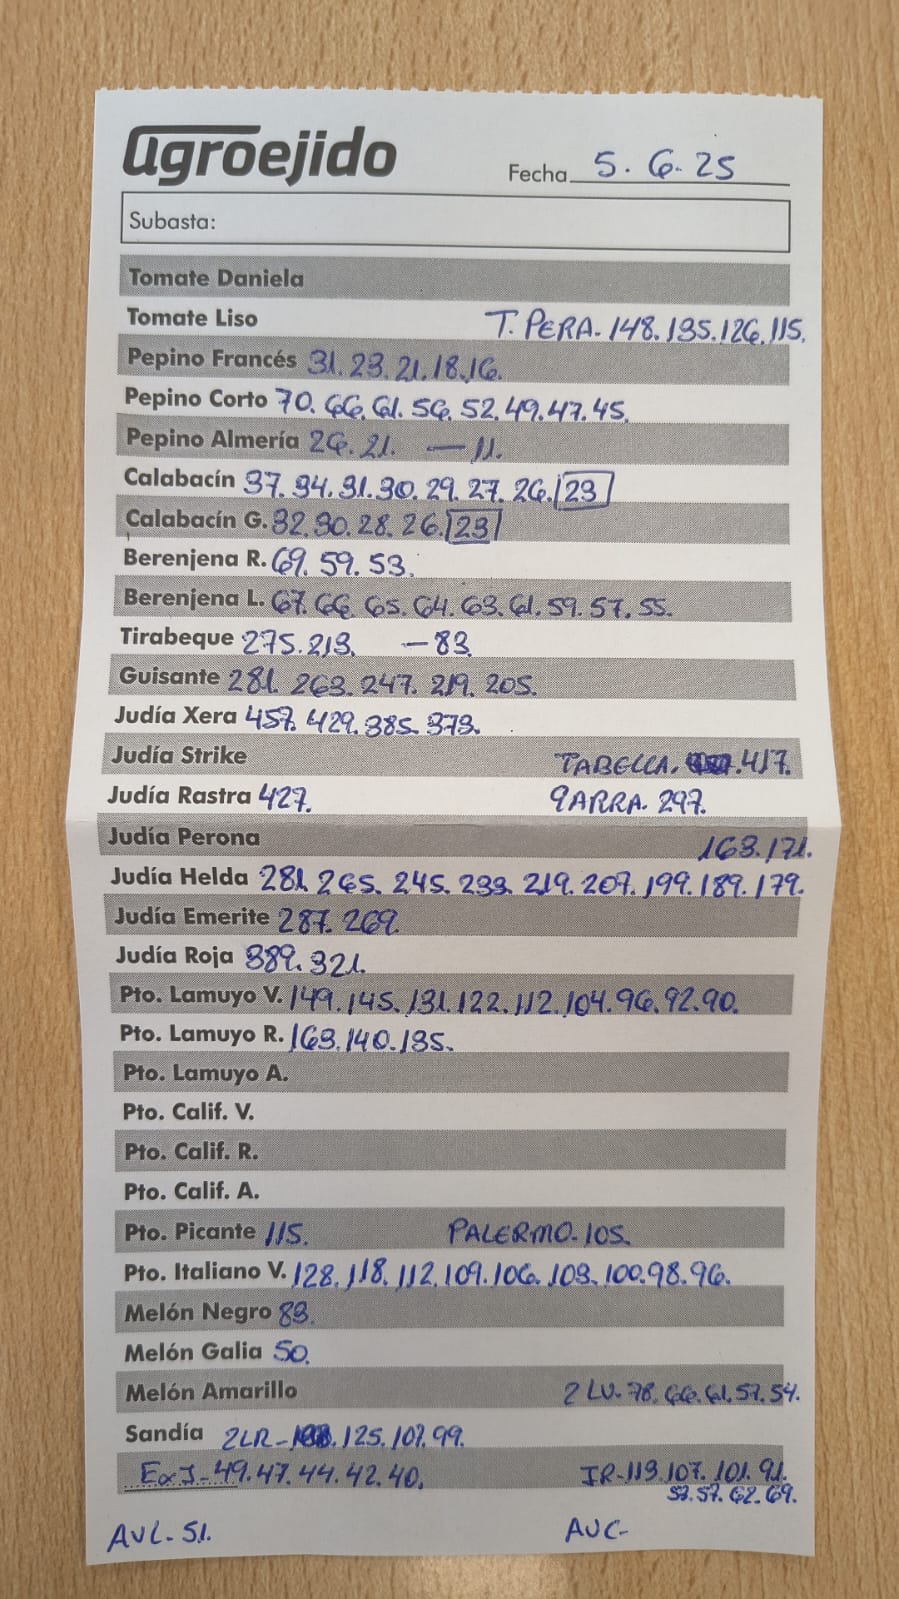 agroejido
Fecha 5. 6. 25
Subasta:
Tomate Daniela
Tomate Liso T. PERA. 148. 135. 126. 115.
Pepino Francés 31. 23. 21. 18. 16.
Pepino Corto 70. 66. 61. 56. 52. 49. 47. 45.
Pepino Almería 26. 21. — 11.
Calabacín 37. 34. 31. 30. 29. 27. 26. 23
Calabacín G. 32. 30. 28. 26. 23
Berenjena R. 69. 59. 53.
Berenjena L. 67. 66. 65. 64. 63. 61. 59. 57. 55.
Tirabeque 275. 213. — 83
Guisante 281. 263. 247. 219. 205.
Judía Xera 457. 429. 385. 373.
Judía Strike TABELLA. .417.
Judía Rastra 427. GARRA. 297.
Judía Perona 163. 171.
Judía Helda 281. 265. 245. 233. 219. 207. 199. 189. 179.
Judía Emerite 287. 269.
Judía Roja 389. 321.
Pto. Lamuyo V. 149. 145. 131. 122. 112. 104. 96. 92. 90.
Pto. Lamuyo R. 163. 140. 135.
Pto. Lamuyo A.
Pto. Calif. V.
Pto. Calif. R.
Pto. Calif. A.
Pto. Picante 115. PALERMO. 105.
Pto. Italiano V. 128. 118. 112. 109. 106. 103. 100. 98. 96.
Melón Negro 83.
Melón Galia 50.
Melón Amarillo 2 LV. 78. 66. 61. 57. 54.
Sandía 2LR - .125. 107. 99.
- 49. 47. 44. 42. 40. IR - 113. 107. 101. 91.
53. 57. 62. 69.
AVL. 51. AUC-